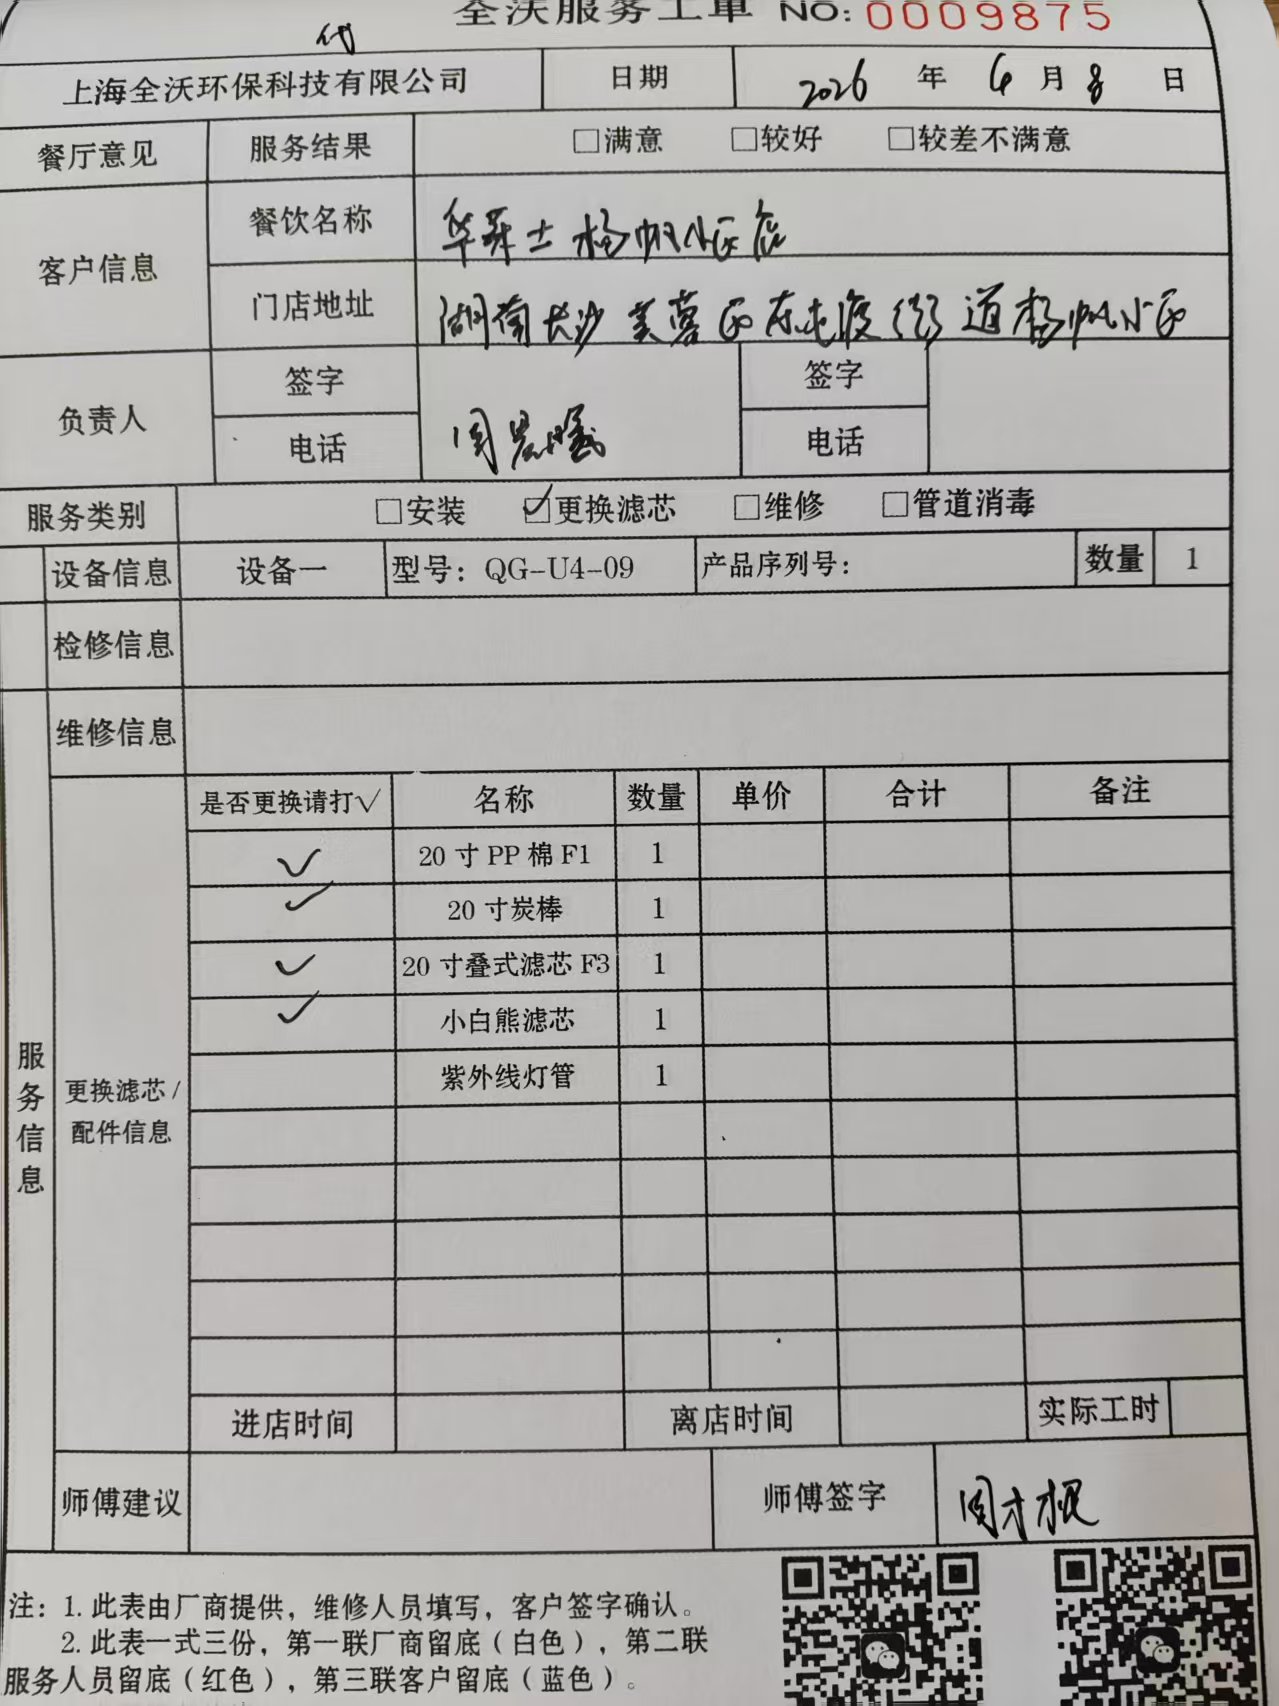 全沃服务工单 NO: 0009875
代
上海全沃环保科技有限公司 日期 2026 年 4 月 8 日
餐厅意见 服务结果 □满意 □较好 □较差不满意
客户信息 餐饮名称 华莱士杨帆小区店
门店地址 湖南长沙芙蓉区东屯渡街道杨帆小区
负责人 签字 签字
电话 周 电话
服务类别 □安装 ☑更换滤芯 □维修 □管道消毒
设备信息 设备一 型号：QG-U4-09 产品序列号： 数量 1
检修信息
维修信息
是否更换请打√ 名称 数量 单价 合计 备注
✓ 20寸PP棉F1 1
✓ 20寸炭棒 1
✓ 20寸叠式滤芯F3 1
✓ 小白熊滤芯 1
紫外线灯管 1
服务信息
更换滤芯/
配件信息
进店时间 离店时间 实际工时
师傅建议 师傅签字 周才根
注：1.此表由厂商提供，维修人员填写，客户签字确认。
2.此表一式三份，第一联厂商留底（白色），第二联
服务人员留底（红色），第三联客户留底（蓝色）。